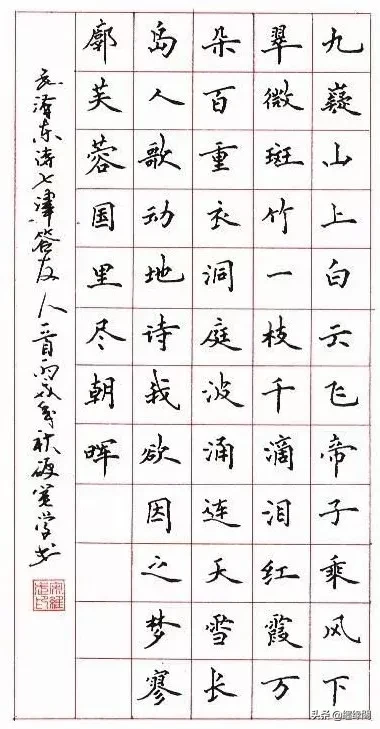 九嶷山上白云飞帝子乘风下
翠微斑竹一枝千滴泪红霞万
朵百重衣洞庭波涌连天雪长
岛人歌动地诗我欲因之梦寥
廓芙蓉国里尽朝晖
毛泽东诗七律答友人一首丙戌年秋学书
头条 @繼缘閣